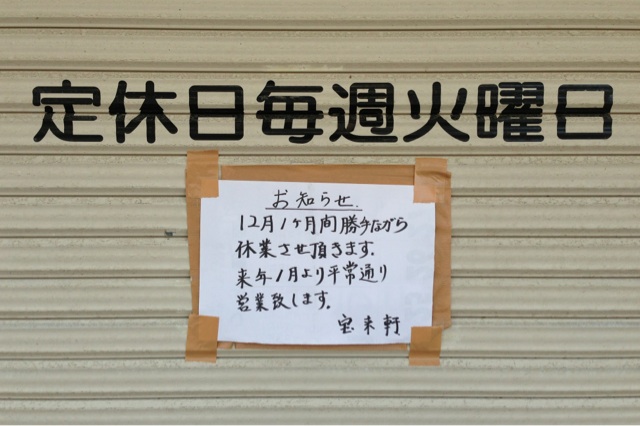 定休日毎週火曜日
お知らせ.
12月1ヶ月間勝手ながら
休業させ頂きます.
来年1月より平常通り
営業致します.
宝来軒